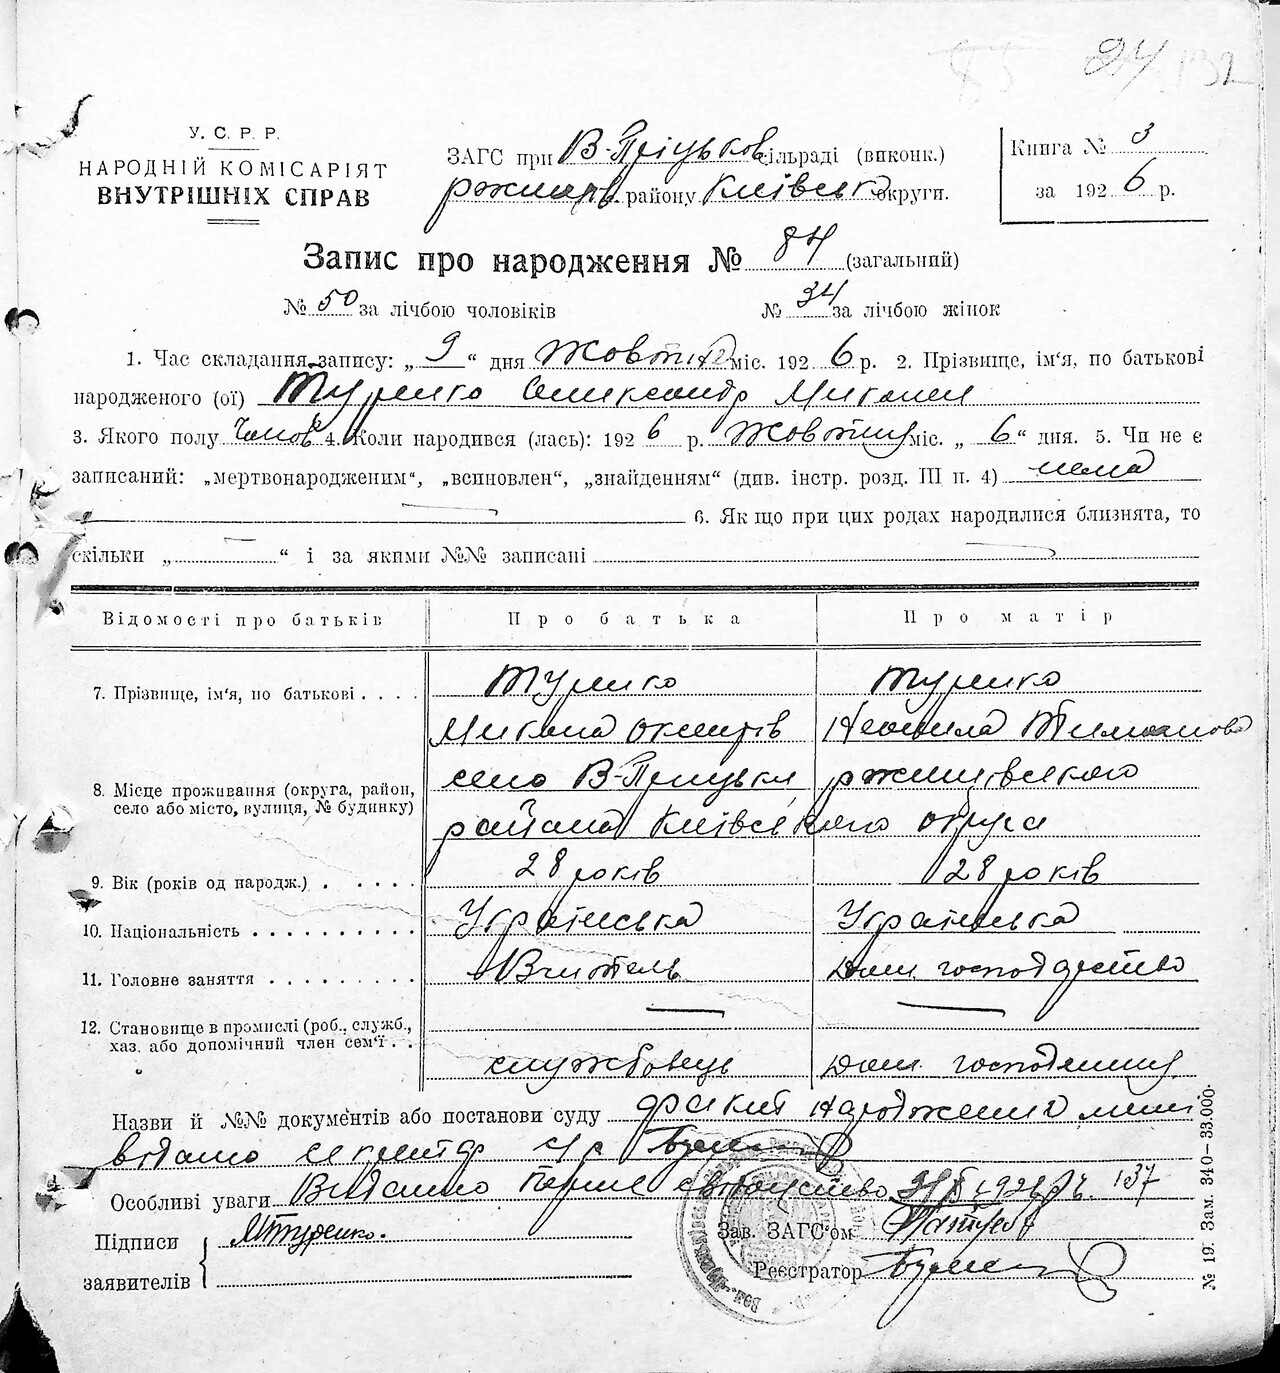 24
У. С. Р. Р.
НАРОДНІЙ КОМІСАРІЯТ
ВНУТРІШНІХ СПРАВ
ЗАГС при В-Пріцьков сільраді (виконк.)
району Київсько округи.
Книга № 3
за 1926 р.
Запис про народження № 84 (загальний)
№ 50 за лічбою чоловіків № 34 за лічбою жінок
1. Час складання запису: „ 9 “ дня Жовтня міс. 1926 р. 2. Прізвище, ім'я, по батькові
народженого (ої) Туренко Олександр Микол
3. Якого полу Чолов 4. Коли народився (лась): 1926 р. Жовтня міс. „ 6 “ дня. 5. Чи не є
записаний: „мертвонародженим“, „всиновлен“, „знайденням“ (див. інстр. розд. III п. 4) нема
6. Як що при цих родах народилися близнята, то
скільки „ “ і за якими №№ записані
Відомості про батьків Про батька Про матір
7. Прізвище, ім'я, по батькові . . . . Туренко Туренко
Микола
8. Місце проживання (округа, район, село або місто, вулиця, № будинку) село В-Прицьки ржищівського
района Київського округа
9. Вік (років од народж.) . . . . . 28 років 28 років
10. Національність . . . . . . . . . . Українська Українська
11. Головне заняття . . . . . . . . . Вчитель Дом. господарство
12. Становище в промислі (роб., служб., хаз. або допомічний член сем'ї . . службовець Дом. господиня
Назви й №№ документів або постанови суду факт народження мені
відомо секретар с/р
Особливі уваги Видано перше свідоцтво 137
Підписи заявителів МТуренко.
Зав. ЗАГС'ом
Реєстратор
№ 19. Зам. 340—33.000.